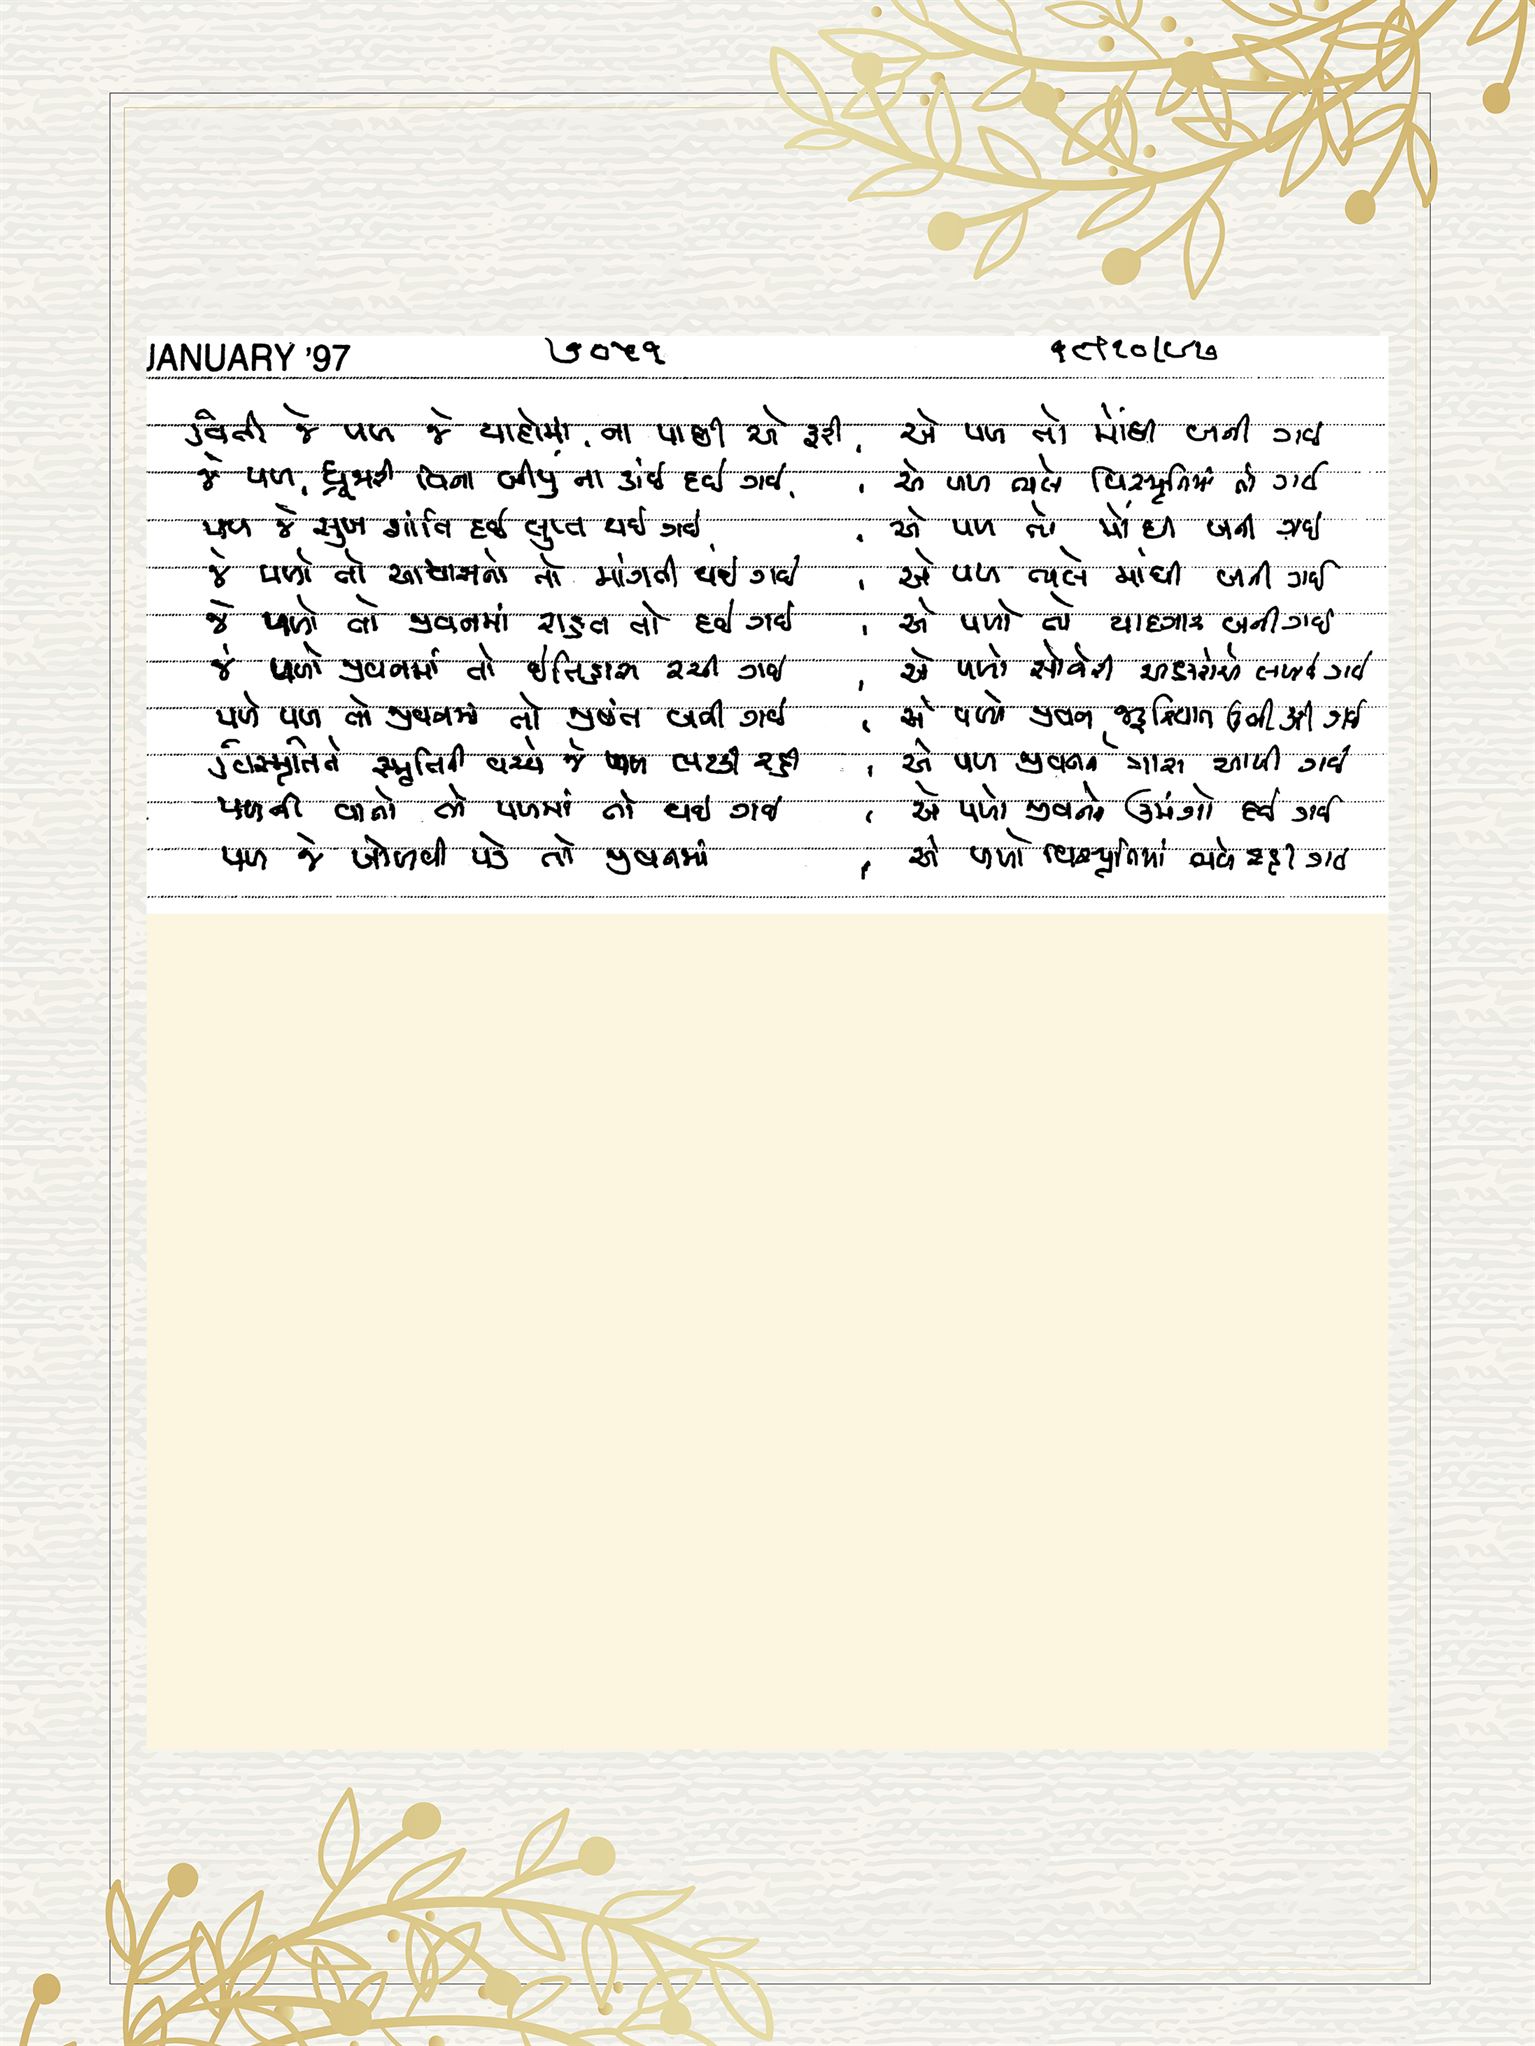 JANUARY '97 ૭૦૫૧ ૧૯૧૦/૫૭
વિતી જે પળ જે યાદોમાં, ના પાછી એ ફરી, એ પળ તો મોંઘી બની ગઈ
જે પળ, ધ્રૂજારી વિના બીજું ના કાંઈ દઈ ગઈ, એ પળ ત્યાં વિસ્મૃતિમાં તો ગઈ
પળ જે સુખ શાંતિ દઈ લુપ્ત થઈ ગઈ, એ પળ તો મોંઘી બની ગઈ
જે પળો તો આશ્વાસનો તો માંગતી થઈ ગઈ, એ પળ મોંઘી બની ગઈ
જે પળો તો જીવનમાં રાહત તો દઈ ગઈ, એ પળો તો યાદગાર બની ગઈ
જે પળો જીવનમાં તો ઈતિહાસ રચી ગઈ, એ પળો સોનેરી અક્ષરોએ લખાઈ ગઈ
પળે પળ તો જીવનમાં તો જીવંત બની ગઈ, એ પળો જીવન ઊભી કરી ગઈ
વિસ્મૃતિને સ્મૃતિની વચ્ચે જે પળ લટકી રહી, એ પળ જીવનને ત્રાસ આપી ગઈ
પળની વાતો તો પળમાં તો થઈ ગઈ, એ પળો જીવનને ઉમંગો દઈ ગઈ
પળ જે ખોળવી પડે તો જીવનમાં, એ પળો વિસ્મૃતિમાં રહી ગઈ